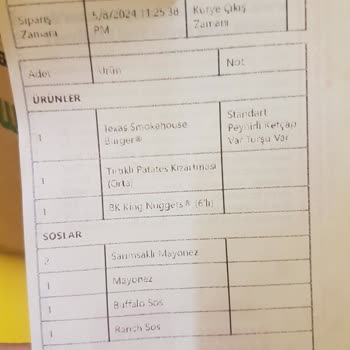 Sipariş Zamanı 5/8/2024 11:25:38 PM Kurye Çıkış Zamanı
Adet Ürün Not
ÜRÜNLER
1 Texas Smokehouse Burger® Standart Peynirli Ketçap Var Turşu Var
1 Tırtıklı Patates Kızartması (Orta)
1 BK King Nuggets® (6'lı)
SOSLAR
2 Sarımsaklı Mayonez
1 Mayonez
1 Buffalo Sos
1 Ranch Sos